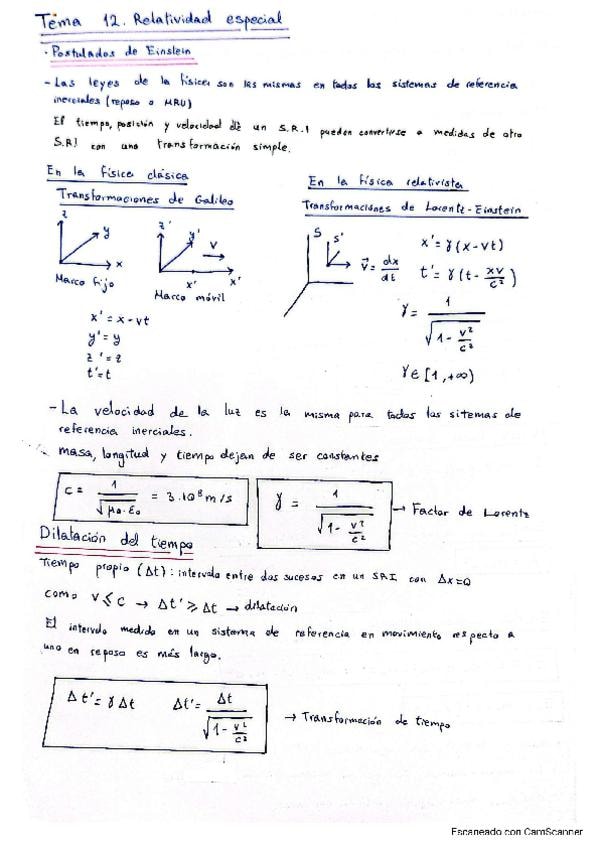 Tema 12. Relatividad especial
· Postulados de Einstein
- Las leyes de la física son las mismas en todos los sistemas de referencia
inerciales (reposo o MRU)
El tiempo, posición y velocidad de un S.R.I pueden convertirse a medidas de otro
S.R.I con una transformación simple.
En la física clásica
Transformaciones de Galileo
z
y
x
Marco fijo
z'
y'
v
x'
x'
Marco móvil
x' = x - vt
y' = y
z' = z
t' = t
En la física relativista
Transformaciones de Lorentz-Einstein
S
S'
v⃗ = dx/dt
x' = γ(x - vt)
t' = γ(t - xv/c²)
γ = 1/√(1 - v²/c²)
γ ∈ [1, +∞)
- La velocidad de la luz es la misma para todos los sitemas de
referencia inerciales.
masa, longitud y tiempo dejan de ser constantes
c = 1/√(μ₀·ε₀) = 3·10⁸ m/s
γ = 1/√(1 - v²/c²) → Factor de Lorentz
Dilatación del tiempo
Tiempo propio (Δt): intervalo entre dos sucesos en un SRI con Δx=0
como v ≤ c → Δt' ≥ Δt → dilatación
El intervalo medido en un sistema de referencia en movimiento respecto a
uno en reposo es más largo.
Δt' = γ Δt Δt' = Δt/√(1 - v²/c²) → Transformación de tiempo
Escaneado con CamScanner